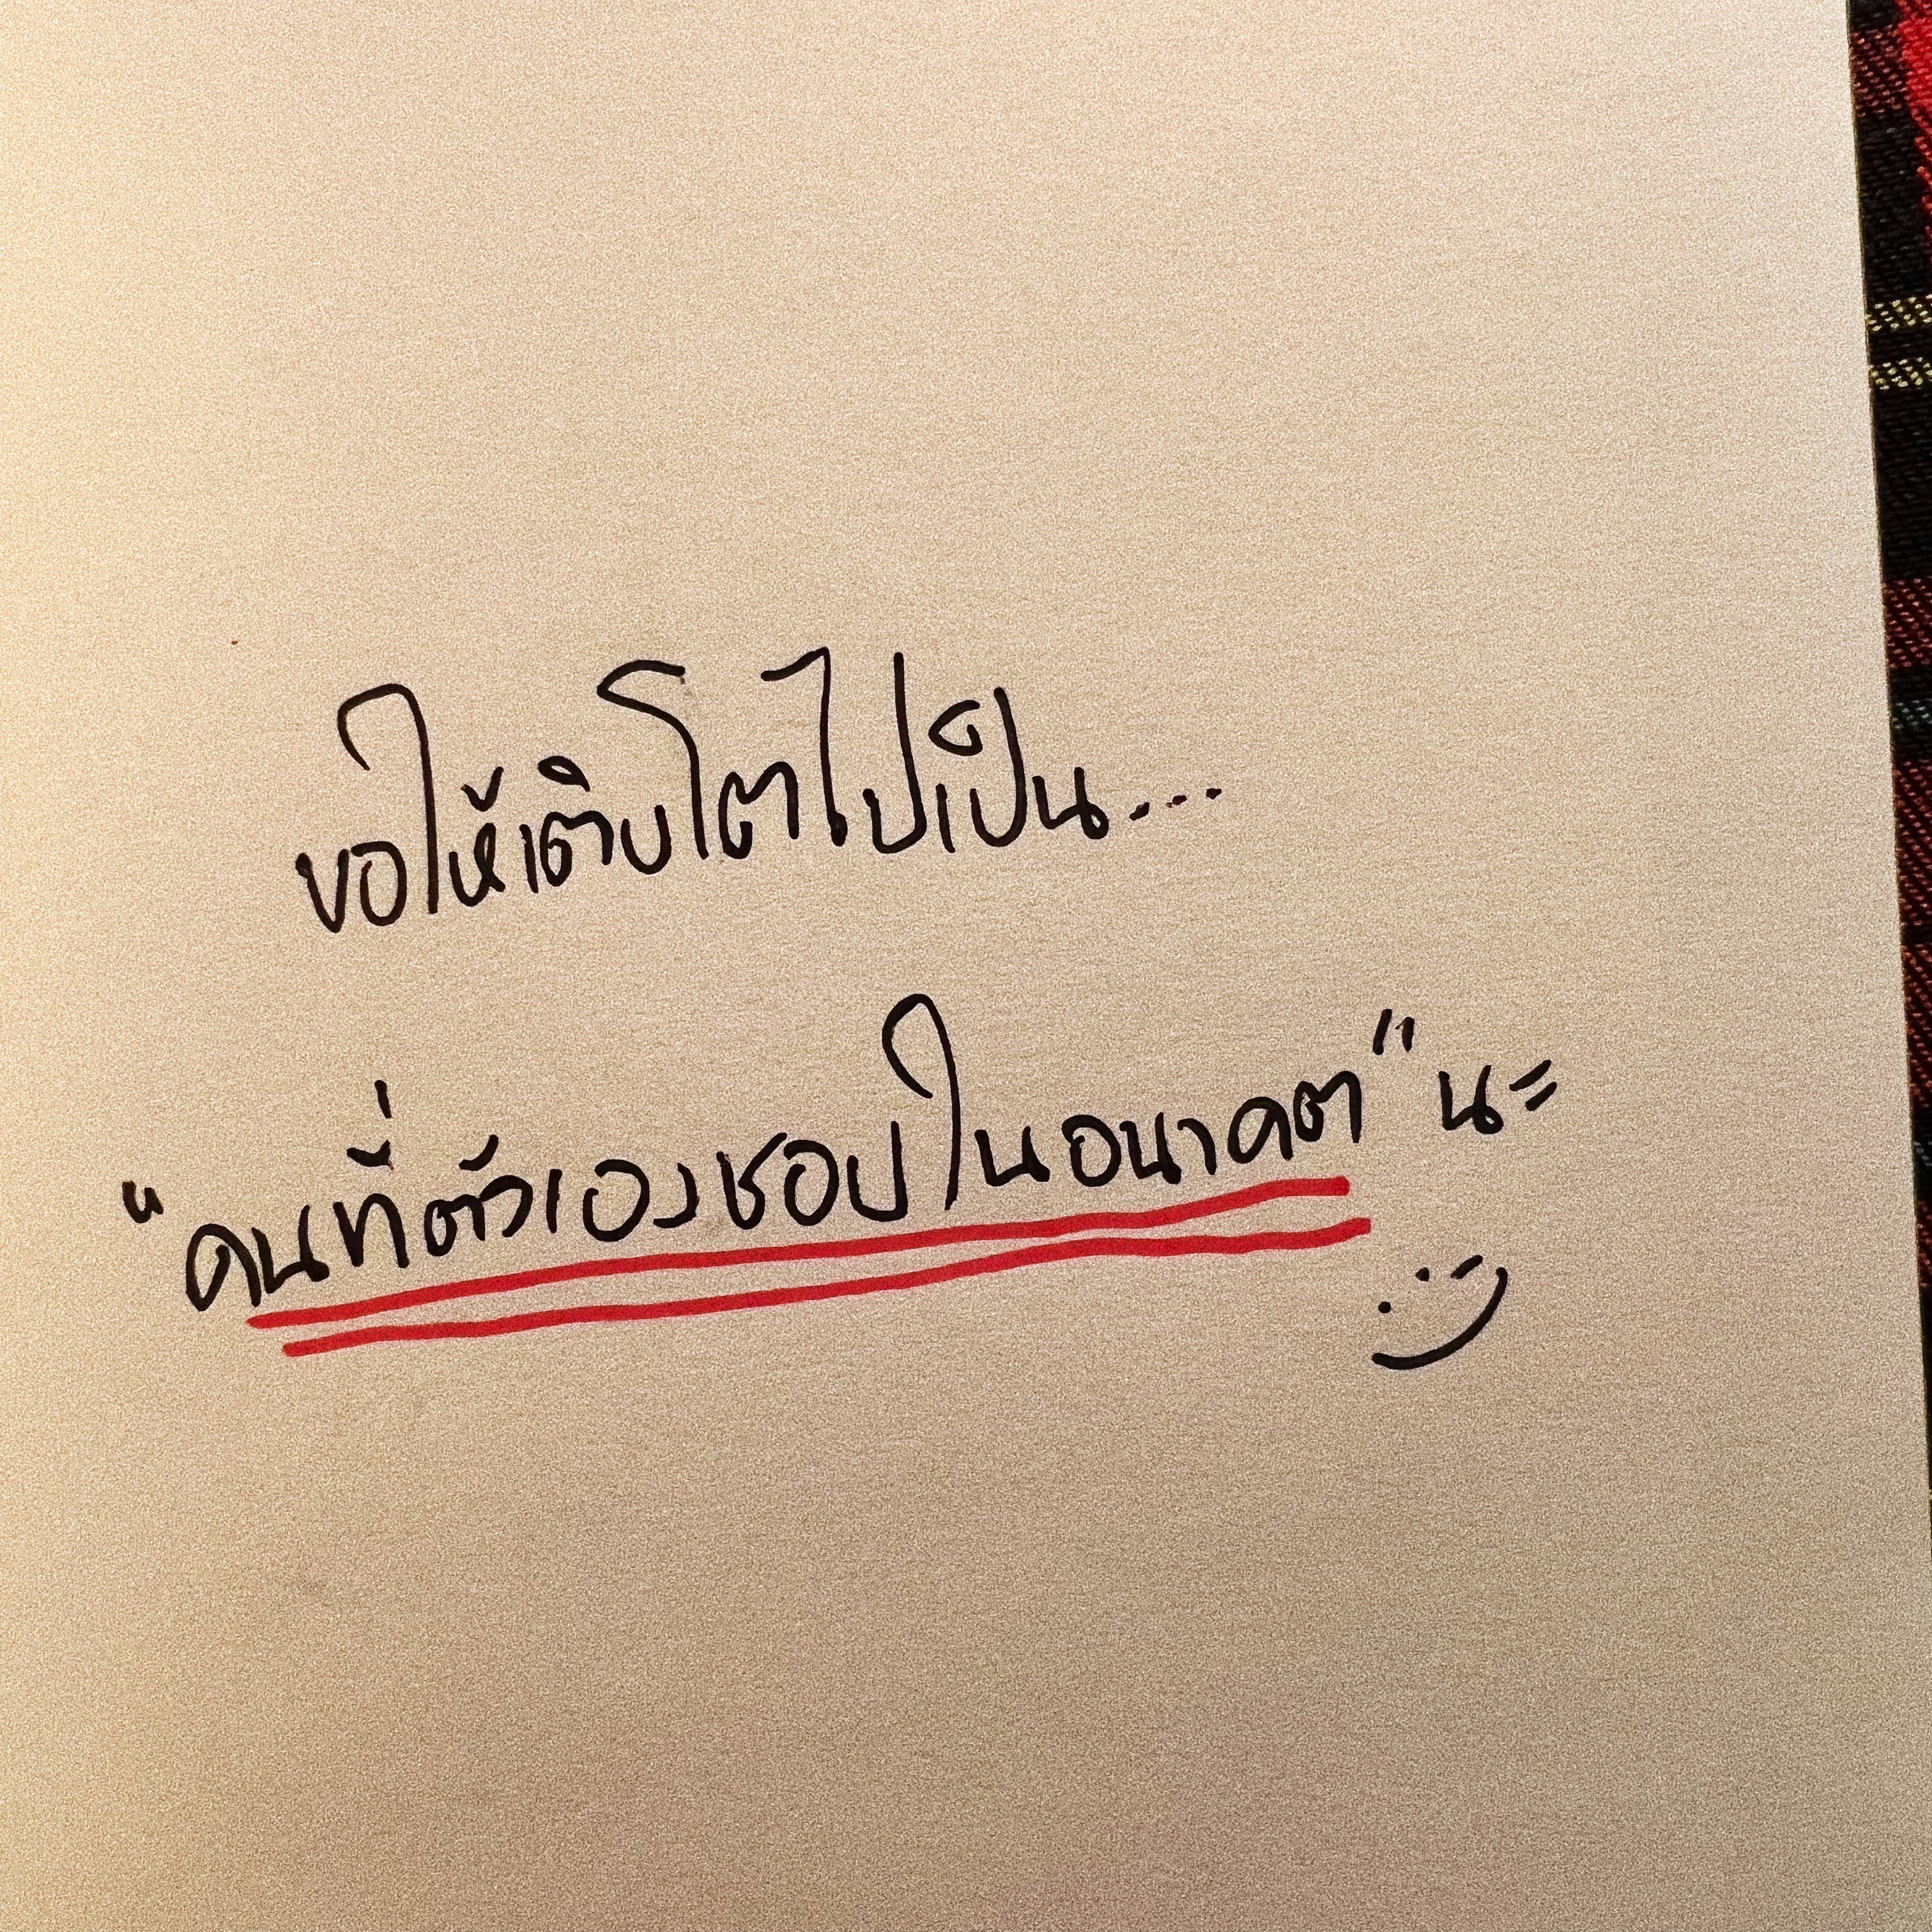 ขอให้เติบโตไปเป็น...
"คนที่ตัวเองชอบในอนาคต" นะ